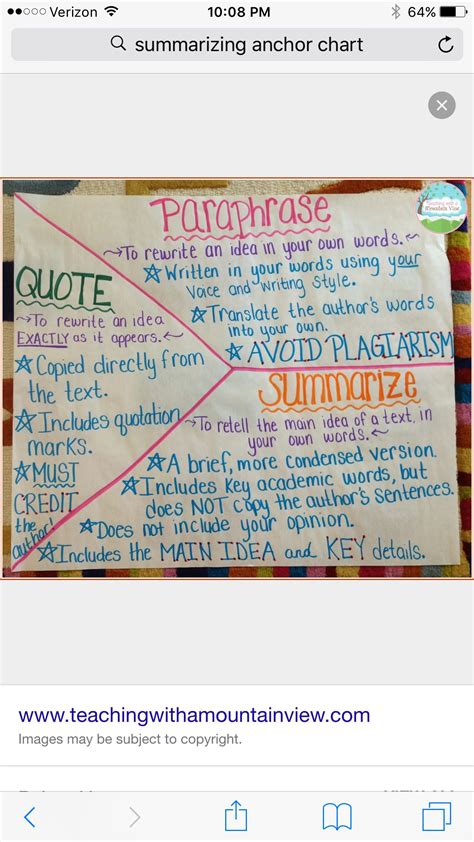 Verizon
10:08 PM
64%
summarizing anchor chart
Teaching with a
Mountain View
Paraphrase
To rewrite an idea in your own words.
Written in your words using your
Voice and writing style.
Translate the author's words
into your own.
AVOID PLAGIARISM
QUOTE
To rewrite an idea
EXACTLY as it appears.
Copied directly from
the text.
Includes quotation
marks.
MUST
CREDIT
the
author!
Summarize
To retell the main idea of a text, in
your own words.
A brief, more condensed version.
Includes key academic words, but
does NOT copy the author's sentences.
Does not include your opinion.
Includes the MAIN IDEA and KEY details.
www.teachingwithamountainview.com
Images may be subject to copyright.